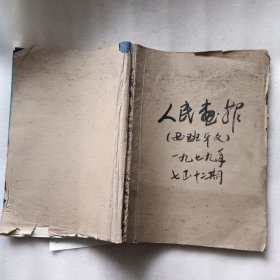 人民画报
(西班牙文)
一九七九年
七至十二期